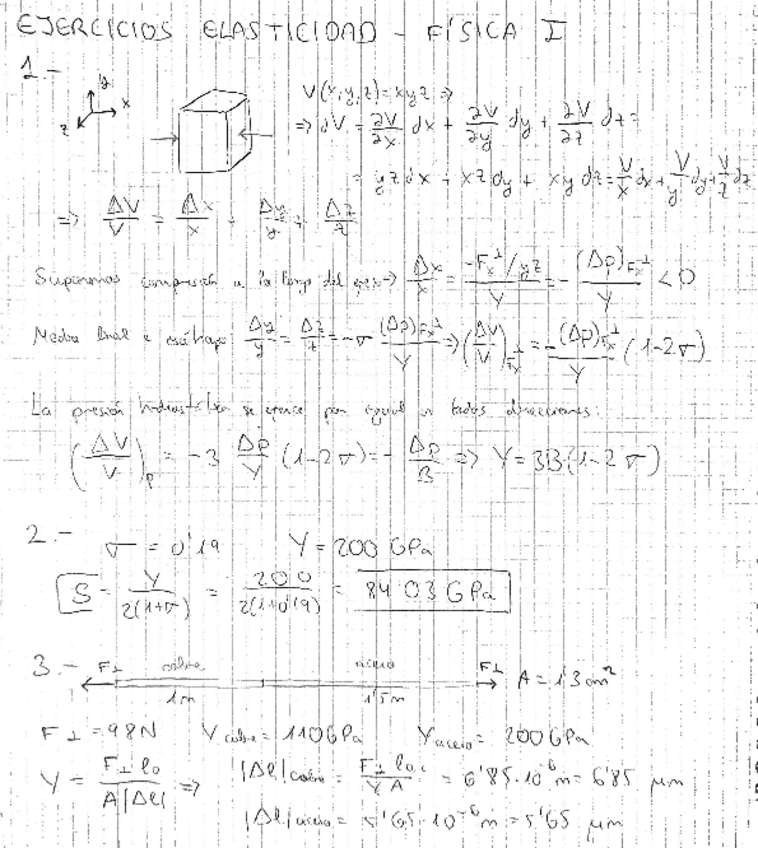 EJERCICIOS ELASTICIDAD - FÍSICA I
1.-
y
x
z
V(x,y,z)=xyz ⇒
⇒ dV = ∂V/∂x dx + ∂V/∂y dy + ∂V/∂z dz =
= yz dx + xz dy + xy dz = V/x dx + V/y dy + V/z dz
⇒ ΔV/V = Δx/x + Δy/y + Δz/z
Suponemos compresión a lo largo del eje x → Δx/x = -Fx⊥/yz / Y = - (Δp)Fx⊥ / Y < 0
Medio lineal e isótropo Δy/y = Δz/z = -σ (Δp)Fx⊥ / Y ⇒ (ΔV/V)Fx⊥ = - (Δp)Fx⊥ / Y (1-2σ)
La presión hidrostática se ejerce por igual en todas direcciones:
(ΔV/V)p = -3 Δp/Y (1-2σ) = - Δp/B ⇒ Y = 3B(1-2σ)
2.- σ = 0'19 Y = 200 GPa
S = Y/2(1+σ) = 200/2(1+0'19) = 84'03 GPa
3.- F⊥ cobre acero F⊥ A = 1'3 cm²
1m 1'5m
F⊥ = 98N Y cobre = 110GPa Y acero = 200GPa
Y = F⊥ l0 / A|Δl| ⇒ |Δl| cobre = F⊥ l0c / Y A = 6'85·10⁻⁶ m = 6'85 μm
|Δl| acero = 5'65·10⁻⁶ m = 5'65 μm